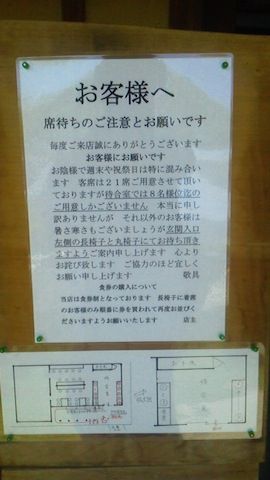 お客様へ
席待ちのご注意とお願いです
毎度ご来店誠にありがとうございます
お客様にお願いです
お陰様で週末や祝祭日は特に混み合い
ます 客席は２１席ご用意させて頂い
ておりますが待合室では８名様位迄の
ご用意しかございません 本当に申し
訳ありませんが それ以外のお客様は
暑さ寒さもございましょうが玄関入口
左側の長椅子と丸椅子にてお待ち頂き
ますようご案内申し上げます 心より
お詫び致します ご協力のほど宜しく
お願い申し上げます 敬具
食券の購入について
当店は食券制となっております 長椅子に着席
のお客様のみ順番に券を買われて再度お並びく
ださいますようお願いいたします 店主